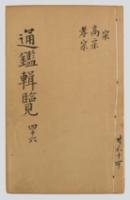 宋
高宗
孝宗
通鑑輯覽
四十六